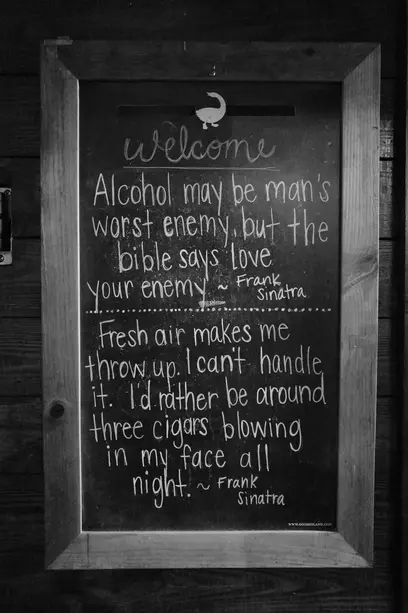 welcome
Alcohol may be man's
worst enemy, but the
bible says 'love
your enemy' ~ Frank
Sinatra
Fresh air makes me
throw up. I can't handle
it. I'd rather be around
three cigars blowing
in my face all
night. ~ Frank
Sinatra